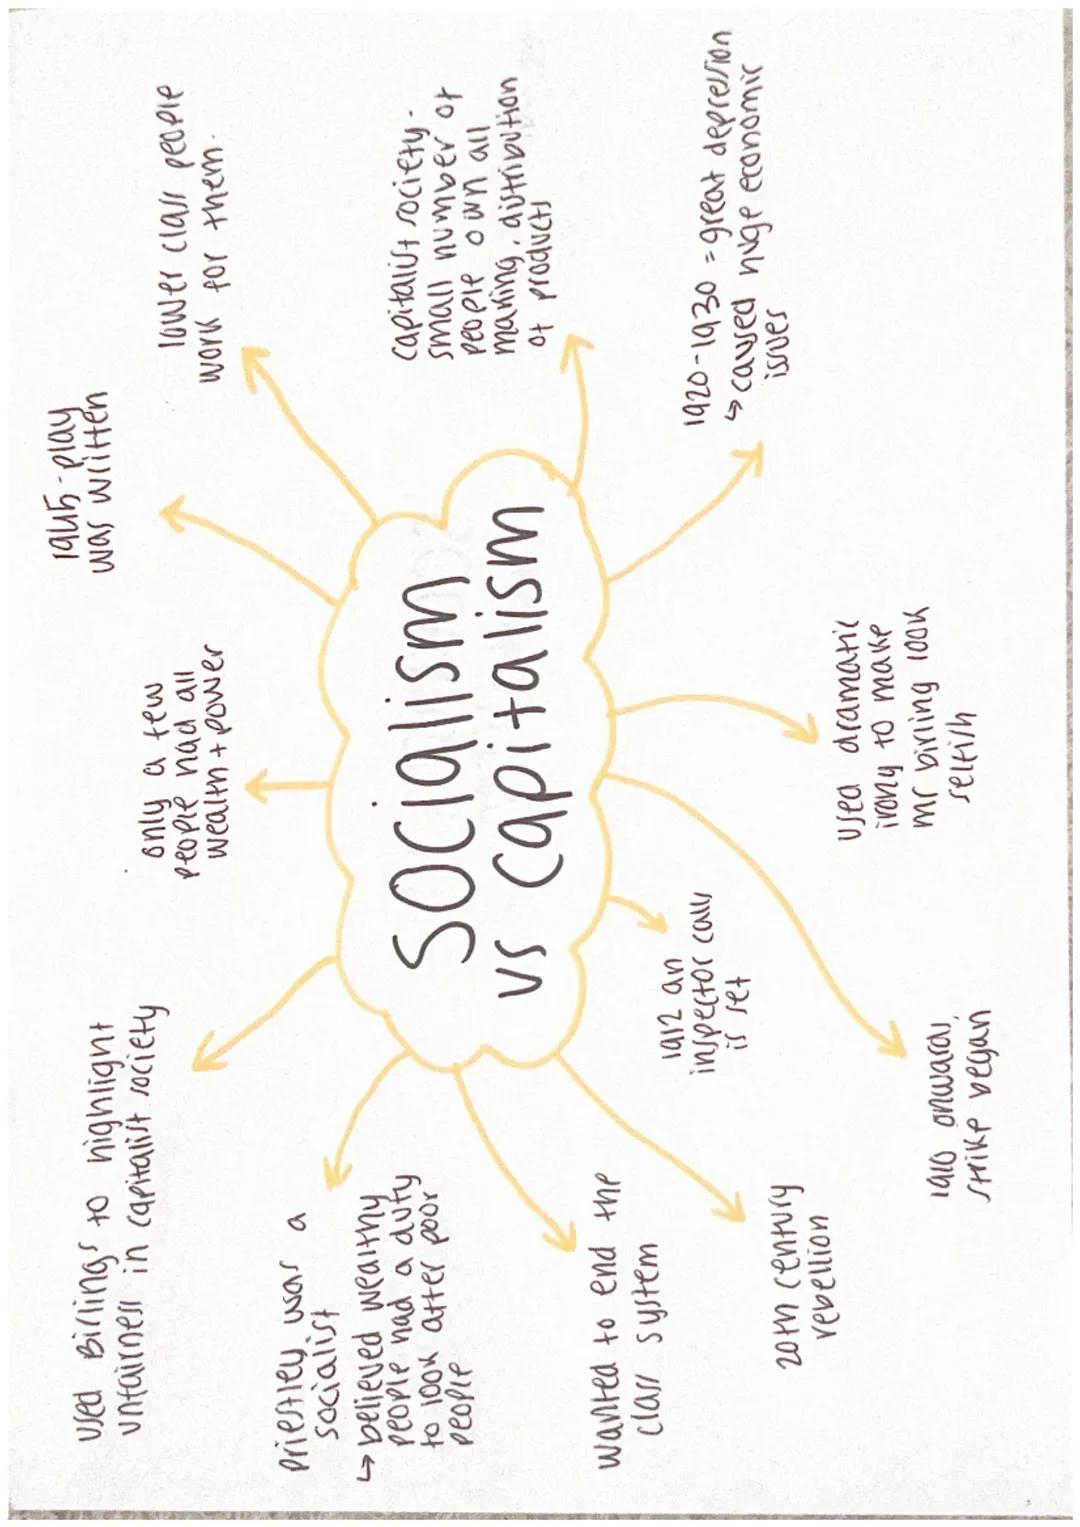 socialism
vs capitalism
used Birlings to highlight
unfairness in capitalist society
only a few
people had all
wealth + power
1945 - play
was written
lower class people
work for them.
capitalist society -
small number of
people own all
making, distribution
of products
1920-1930 = great depression
↳ caused huge economic
issues
used dramatic
irony to make
mr birling look
selfish
1912 an
inspector calls
is set
1910 onwards,
strike began
20th century
rebellion
wanted to end the
class system
priestley was a
socialist
↳ believed wealthy
people had a duty
to look after poor
people